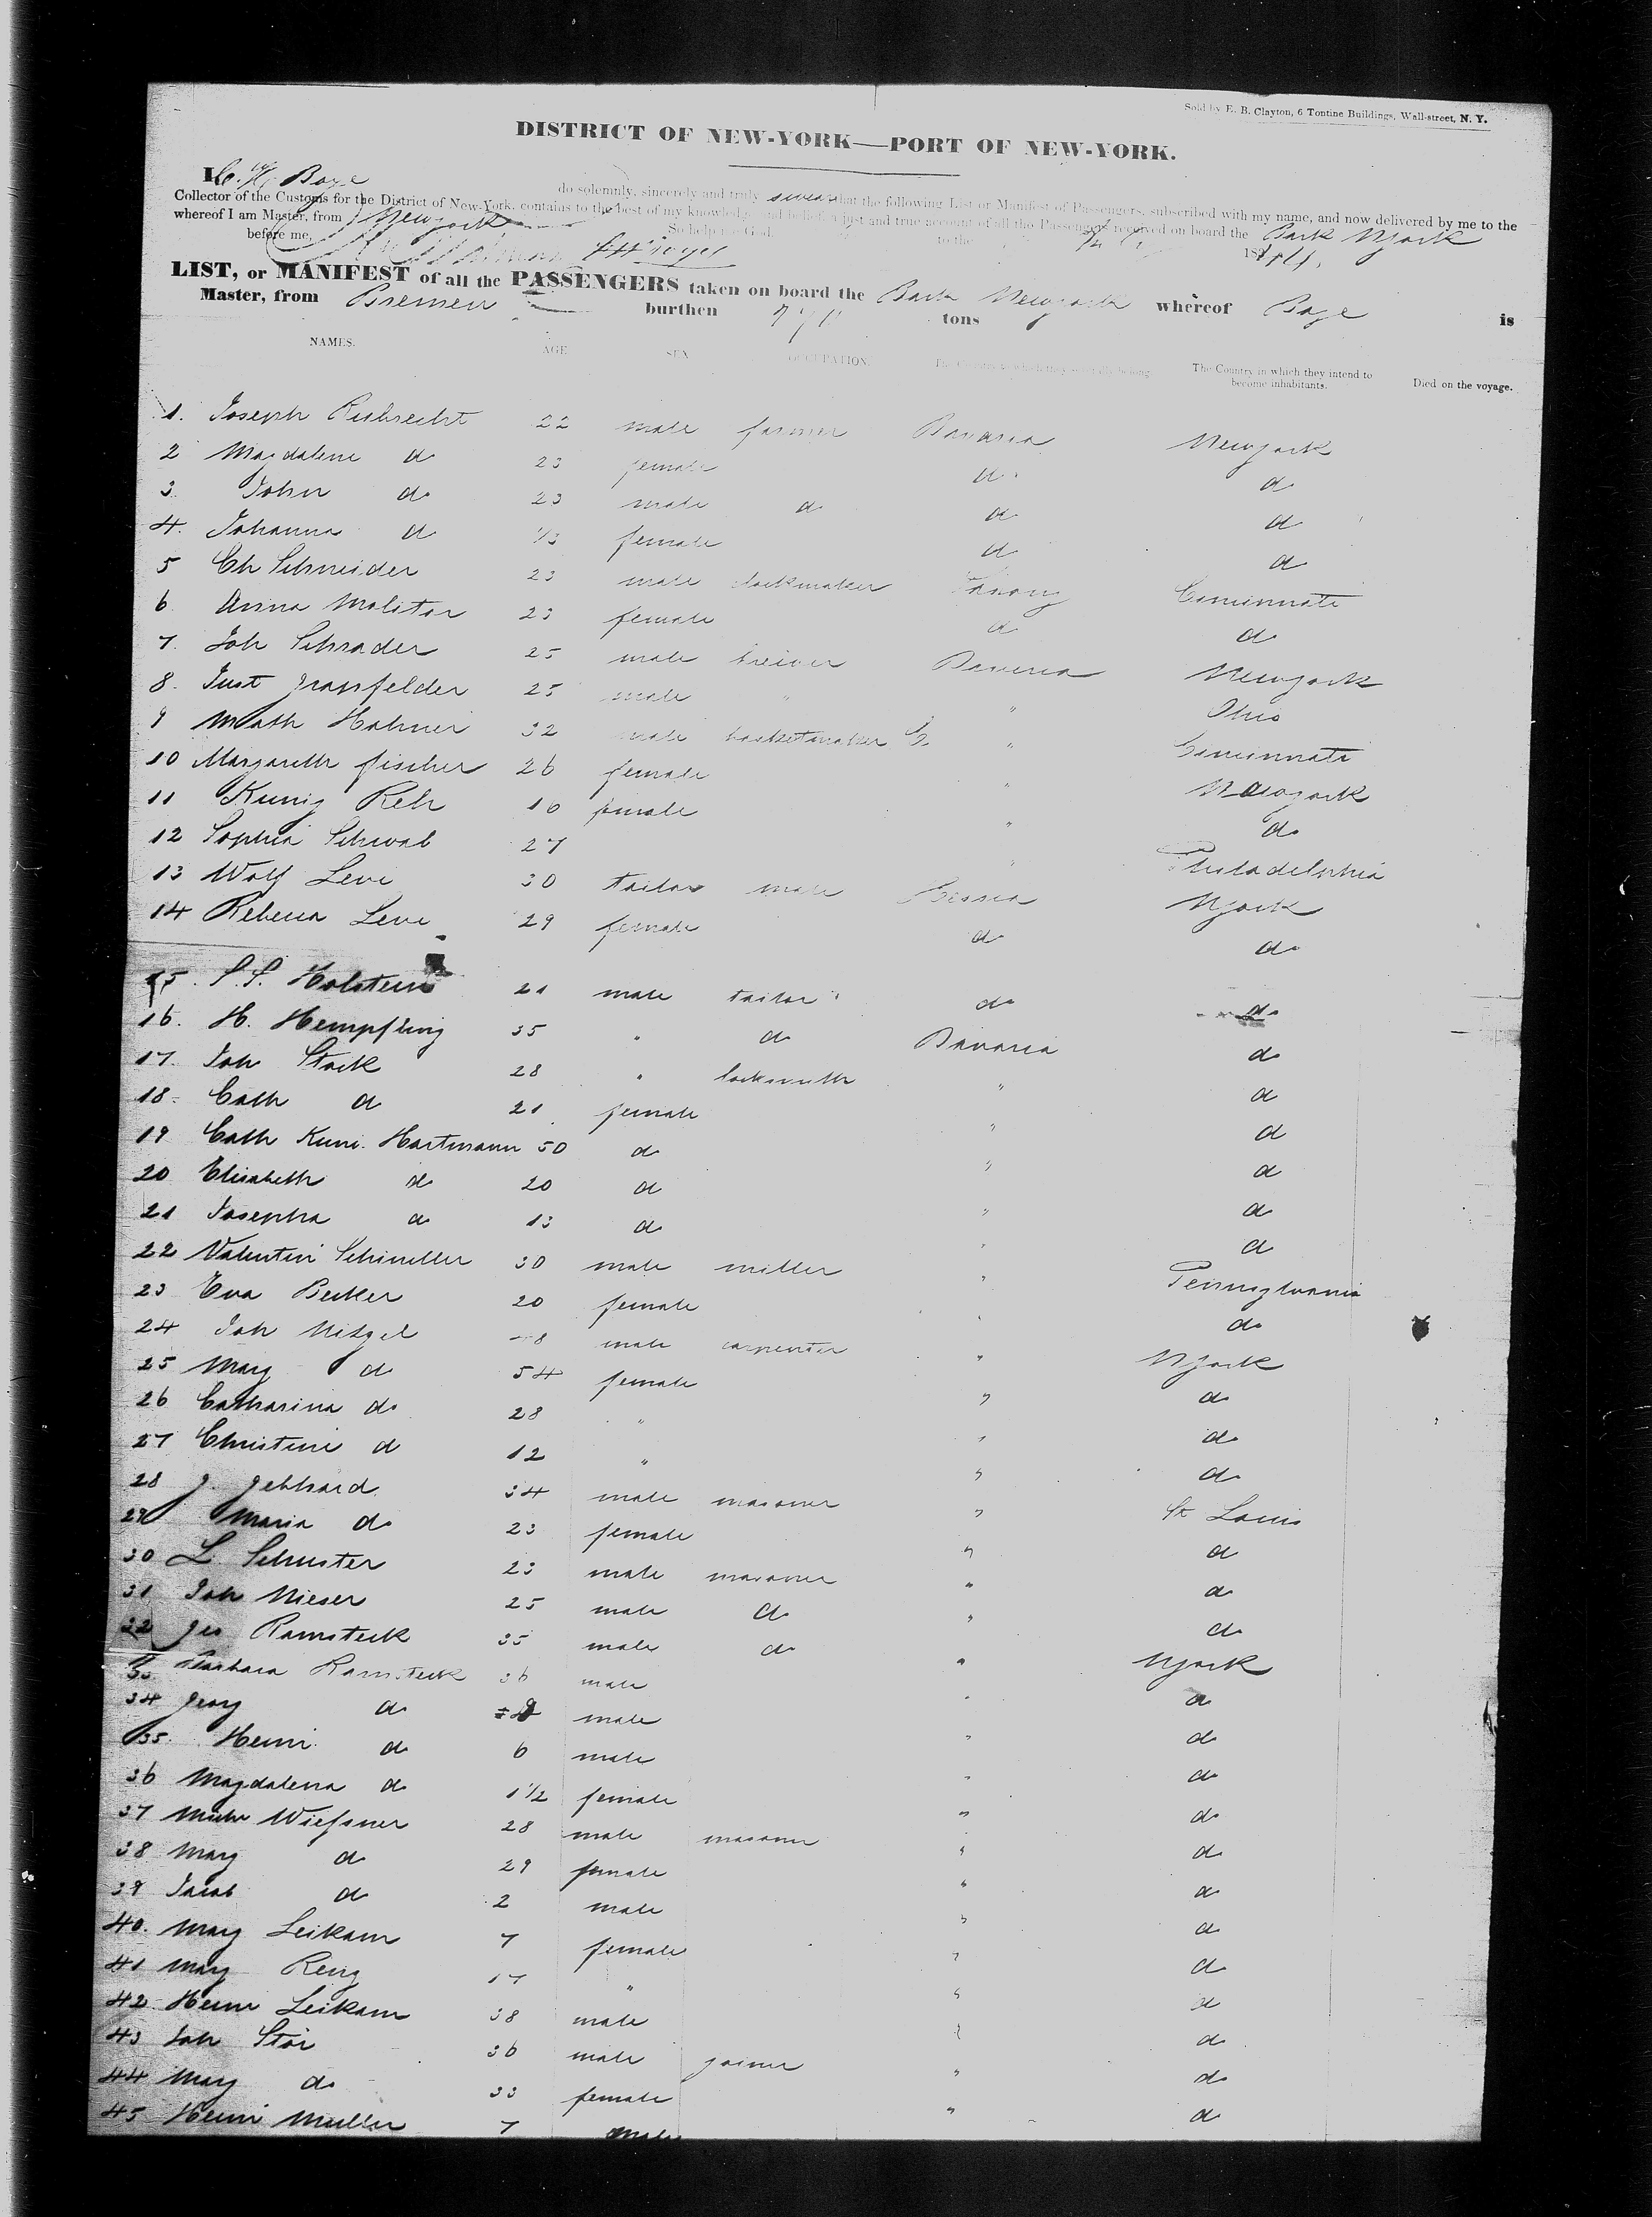 Sold by E. B. Clayton, 6 Tontine Buildings, Wall-street, N. Y.
DISTRICT OF NEW-YORK—PORT OF NEW-YORK.
I, Boye do solemnly, sincerely and truly swear that the following List or Manifest of Passengers, subscribed with my name, and now delivered by me to the
Collector of the Customs for the District of New-York, contains to the best of my knowledge and belief, a just and true account of all the Passengers received on board the Bark NYork
whereof I am Master, from Newyork
So help me God.
before me,
LIST, or MANIFEST of all the PASSENGERS taken on board the Bark Newyork whereof Boye is
Master, from Bremen burthen tons
NAMES. AGE SEX OCCUPATION. The Country in which they intend to become inhabitants. Died on the voyage.
1. Joseph Rubrecht 22 male farmer Bavaria Newyork
2 Magdalene do 23 female do do
3. John do 23 male do do do
4. Johanna do 1/3 female do do
5 Ch Schneider 23 male clockmaker Saxony Cincinnati
6 Anna Molitor 23 female do do
7. Joh Schrader 25 male brewer Bavaria Newyork
8. Just Grasfelder 25 male " " Ohio
9 Math Hohner 32 male basketmaker " Cincinnati
10 Margareth Fischer 26 female " Newyork
11 Kunig Reh 10 female " do
12 Sophia Schwab 27 " Philadelphia
13 Wolf Levi 30 tailor male Hessia NYork
14 Rebecca Levi 29 female do do
15. S. S. Holstein 21 male tailor do do
16. H. Hempfling 35 " do Bavaria do
17. Joh Stark 28 " locksmith " do
18. Cath do 21 female " do
19 Cath Kuni. Hartmann 50 do " do
20 Elisabeth do 20 do " do
21 Josepha do 13 do " do
22 Valentin Schmeller 30 male miller " Pennsylvania
23 Eva Becker 20 female " do
24 Joh Nitzel male carpenter " NYork
25 Mary do 54 female " do
26 Catharina do 28 " " do
27 Christine do 12 " " do
28 J. Gebhard 34 male masoner " St Louis
29 Maria do 23 female " do
30 L Schuster 23 male masoner " do
31 Joh Nieser 25 male do " do
32 Geo Ramsteck 35 male do " NYork
33 Barbara Ramsteck 36 male " do
34 Georg do male " do
35. Heinr. do 6 male " do
36 Magdalena do 1 1/2 female " do
37 Mich Wiefsner 28 male masoner " do
38 Mary do 29 female " do
39 Jacob do 2 male " do
40. Mary Leikam 7 female " do
41 Mary Reng 17 " " do
42 Heinr Leikam 38 male " do
43 Joh Stör 36 male joiner " do
44 Mary do 33 female " do
45 Heinr Muller 7 male